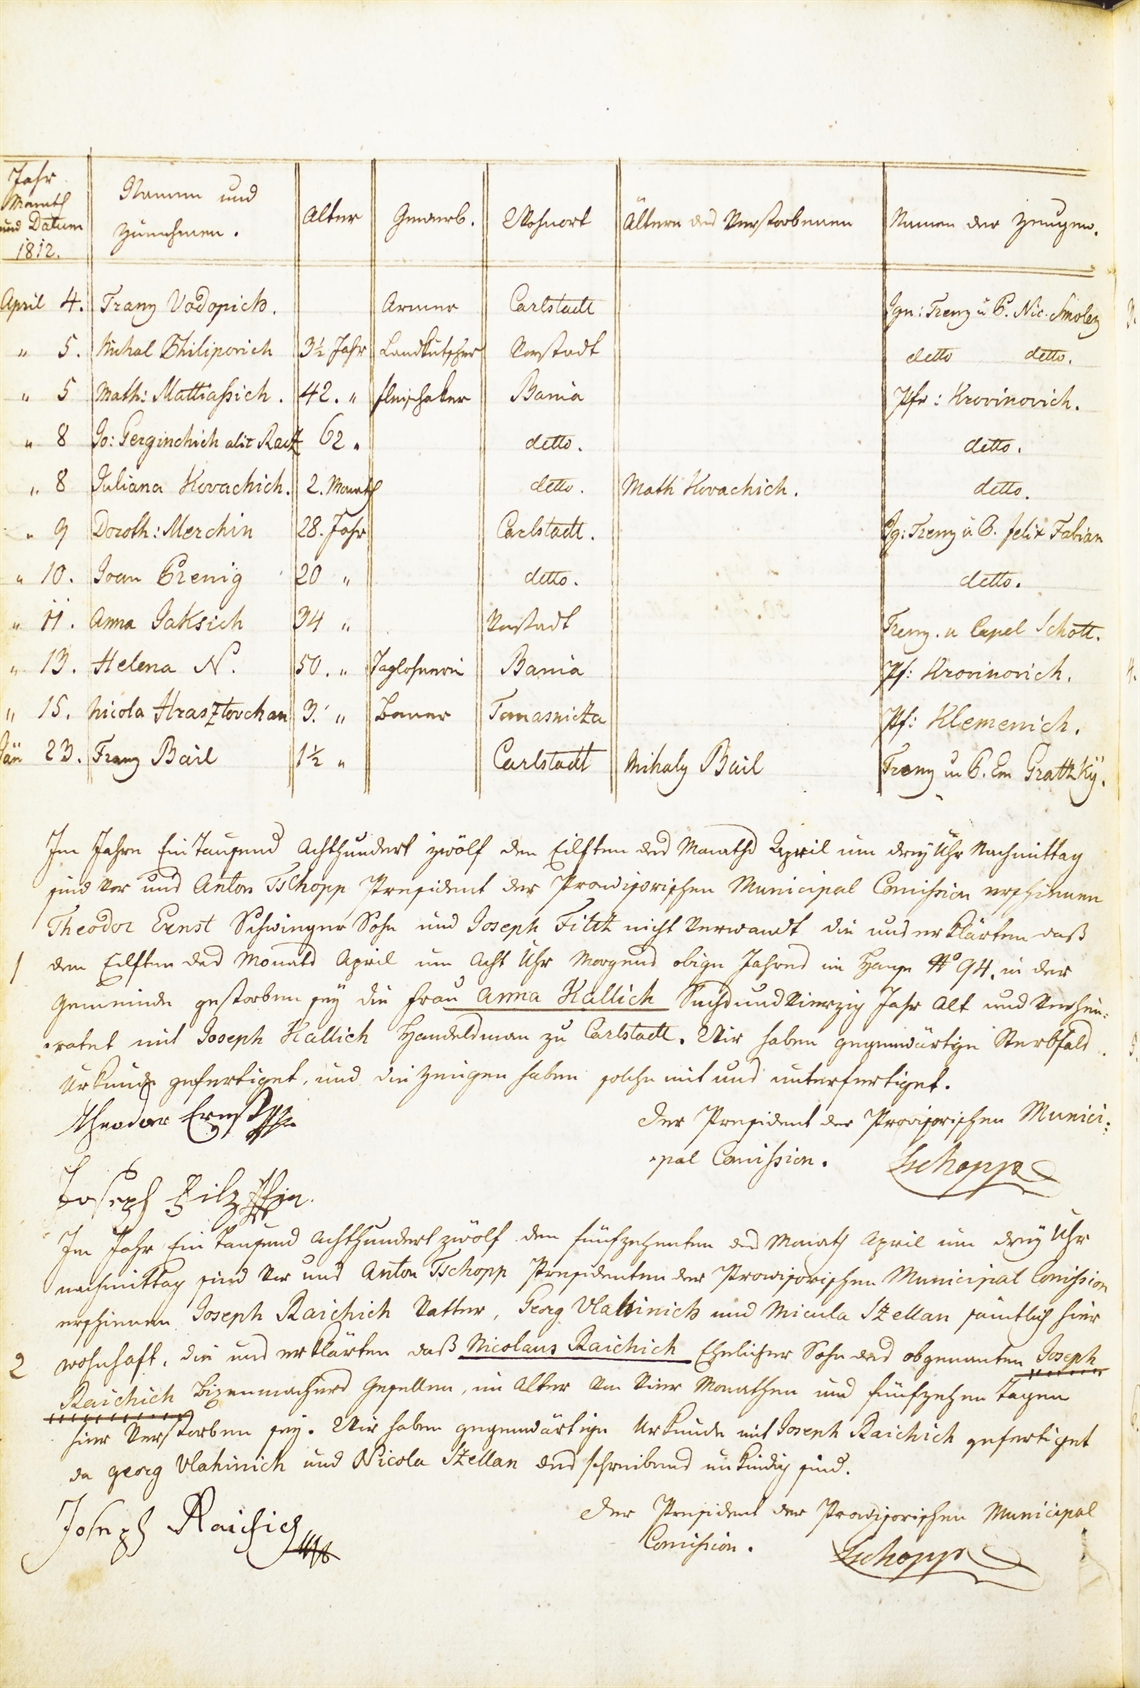 Jahr Monath und Datum 1812. Namen und Zunahmen. Alter Gewerb. Wohnort Ältern des Verstorbenen Namen der Zeugen.
April 4. Franz Vodopich. Armer Carlstadt Ign: Trenz u P. Nic. Smolez
" 5. Mihal Philipovich 3½ Jahr Landkutscher Vorstadt detto detto.
" 5 Math: Mattiaßich. 42. " fleischaker Bania Pfr: Krovinovich.
" 8 Jo: Gerginchich alit 62 " detto. detto.
" 8 Juliana Kovachich. 2. Monath detto. Math Kovachich. detto.
" 9 Doroth: Merchin 28. Jahr Carlstadt. Ig: Trenz u P. felix Fabian
" 10. Ivan Prenig 20 " detto. detto.
" 11. Anna Jaksich 34 " Vorstadt Trenz. u Capel Schott.
" 13. Helena N. 50. " Taglohnerin Bania Pf: Krovinovich.
" 15. Nicola Hrasztovchan 3. " Bauer Tomasnicza Pf: Klemenich.
Jän 23. Franz Bail 1½ " Carlstadt Mihaly Bail Trenz u P. Em Grattzky.
Im Jahre Ein Tausend Achthundert zwölf den Eilften des Monaths April um drey Uhr Nachmittag
sind vor uns Anton Tschopp President der Provisorischen Municipal Comißion erschienen
Theodor Ernst Schwinger Sohn und Joseph Filtz nicht Verwandt die uns erklärten daß
1 den Eilften des Monats April um Acht Uhr Morgens obigen Jahres im Hause No 94. in der
Gemeinde gestorben sey die Frau Anna Kallich Sechs und Vierzig Jahr Alt und Verhei:
rathet mit Joseph Kallich Handelsman zu Carlstadt. Wir haben gegenwärtige Sterbfalls
Urkunde gefertiget, und die Zeugen haben solche mit uns unterfertiget.
Theodor Ernst
Der President der Provisorischen Munici:
pal Comißion. Tschopp
Joseph Filz
Im Jahr Ein tausend Achthundert zwölf den fünfzehenten des Monath April um drey Uhr
nachmittag sind Vor uns Anton Tschopp Presidenten der Provisorischen Municipal Comißion
erschienen Joseph Raichich Vatter, Georg Vlahinich und Nicula Stellan sämtlich hier
2 wohnhaft, die uns erklärten daß Nicolaus Raichich Ehelicher Sohn des obgenanten Joseph
Raichich Bixenmachers Gesellen, im Alter von Vier Monathen und fünfzehen Tagen
hier Verstorben sey. Wir haben gegenwärtige Urkunde mit Joseph Raichich gefertiget
da georg Vlahinich und Nicola Stellan des schreibens unkündig sind.
Joseph Raichich
Der President der Provisorischen Municipal
Comißion. Tschopp